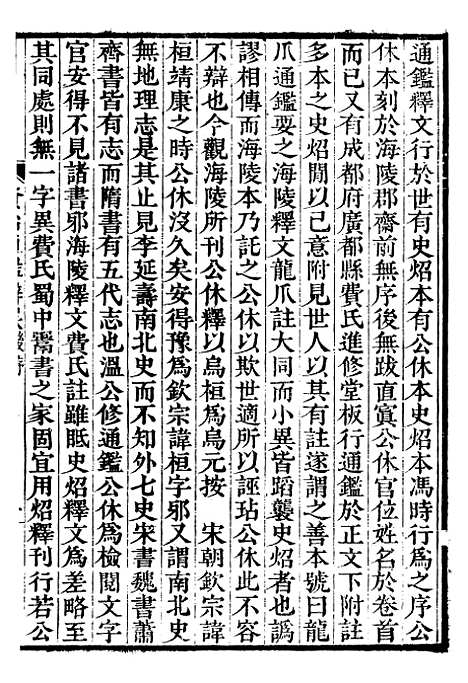 通鑑釋文行於世有史炤本有公休本史炤本馮時行爲之序公
休本刻於海陵郡齋前無序後無跋直寘公休官位姓名於卷首
而已又有成都府廣都縣費氏進修堂板行通鑑於正文下附註
多本之史炤間以已意附見世人以其有註遂謂之善本號曰龍
爪通鑑要之海陵釋文龍爪註大同而小異皆蹈襲史炤者也譌
謬相傳而海陵本乃託之公休以欺世適所以誣玷公休此不容
不辯也今觀海陵所刊公休釋以烏桓爲烏元按　宋朝欽宗諱
桓靖康之時公休沒久矣安得豫爲欽宗諱桓字邪又謂南北史
無地理志是其止見李延壽南北史而不知外七史宋書魏書蕭
齊書皆有志而隋書有五代志也溫公修通鑑公休爲檢閱文字
官安得不見諸書邪海陵釋文費氏註雖眂史炤釋文爲差略至
其同處則無一字異費氏蜀中鬻書之家固宜用炤釋刊行若公